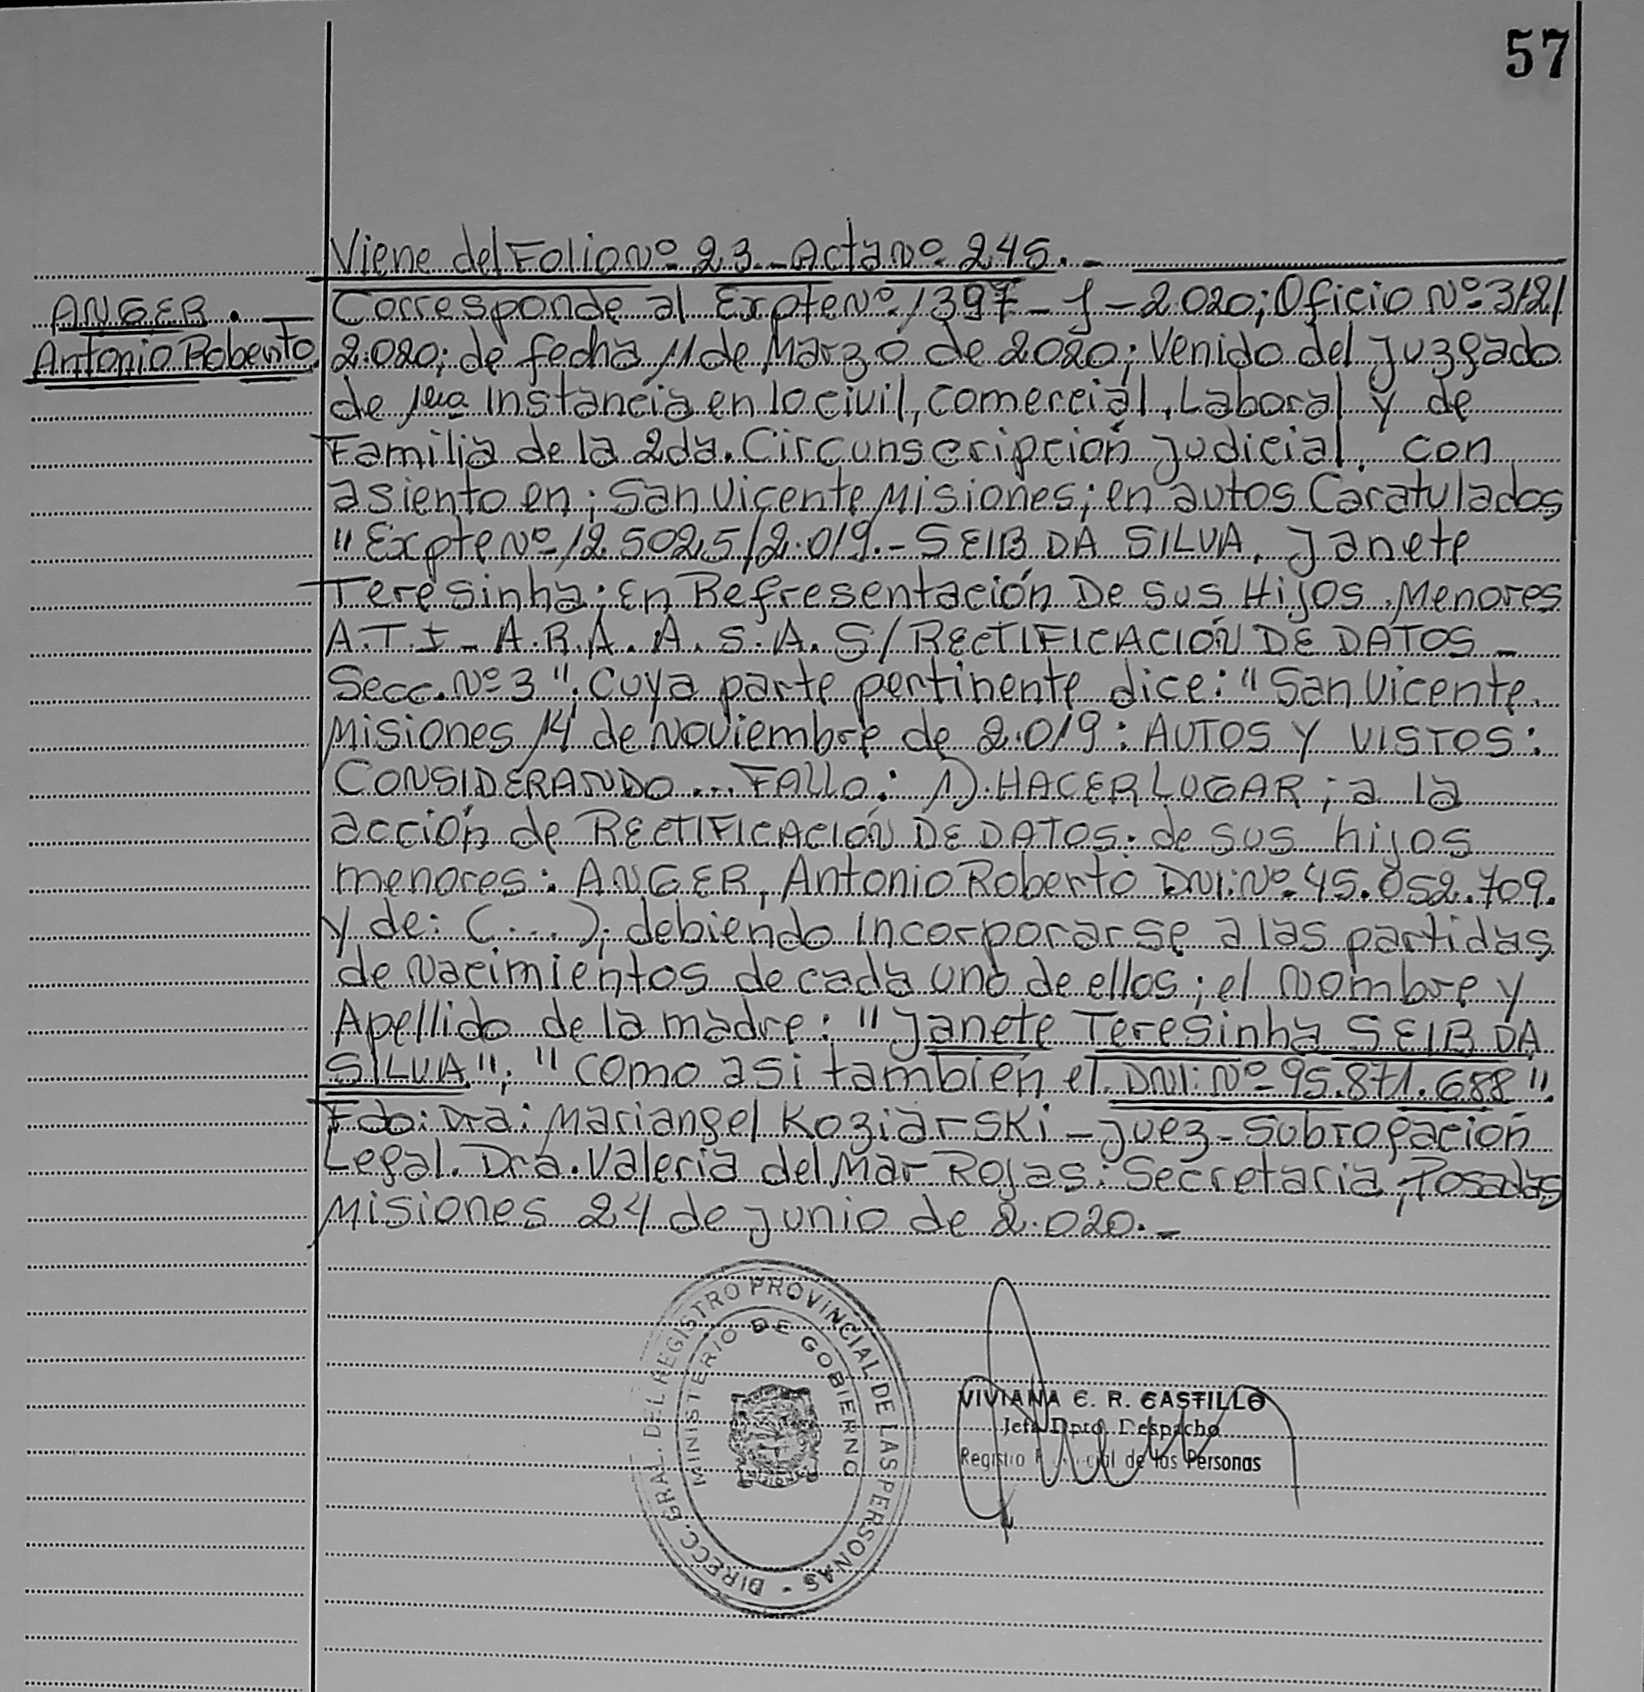 57
Viene del Folio Nº 23 - Acta Nº 245. -
ANGER. -
Antonio Roberto.
Corresponde al Expte Nº 1397 - J - 2.020; Oficio Nº 312/
2.020; de fecha 11 de Marzo de 2020; Venido del Juzgado
de 1era Instancia en lo civil, comercial, Laboral y de
Familia de la 2da. Circunscripción Judicial. con
asiento en; San Vicente Misiones; en autos Caratulados
"Expte Nº 125025/2.019.- SEIB DA SILVA, Janete
Teresinha; En Refresentación De Sus Hijos Menores
A.T.I - A.R.A. A.S.A. S/RECTIFICACIÓN DE DATOS -
Secc. Nº 3"; Cuya parte pertinente dice: "San Vicente.
Misiones 14 de Noviembre de 2.019: AUTOS Y VISTOS:
CONSIDERANDO... FALLO: 1) HACER LUGAR; a la
acción de RECTIFICACIÓN DE DATOS: de sus hijos
menores: ANGER, Antonio Roberto DNI: Nº 45.052.709.
y de: (....); debiendo Incorporarse a las partidas
de Nacimientos de cada uno de ellos; el Nombre y
Apellido de la madre: "Janete Teresinha SEIB DA
SILVA"; "Como asi también el DNI: Nº 95.871.688".
Fdo: Dra: Mariangel Koziarski - Juez - Subrogación
Legal. Dra. Valeria del Mar Rojas: Secretaria, Posadas
Misiones 24 de Junio de 2.020. -
DIRECC. GRAL. DEL REGISTRO PROVINCIAL DE LAS PERSONAS -
MINISTERIO DE GOBIERNO
VIVIANA E. R. CASTILLO
Jefa Dpto. Despacho
Registro de las Personas